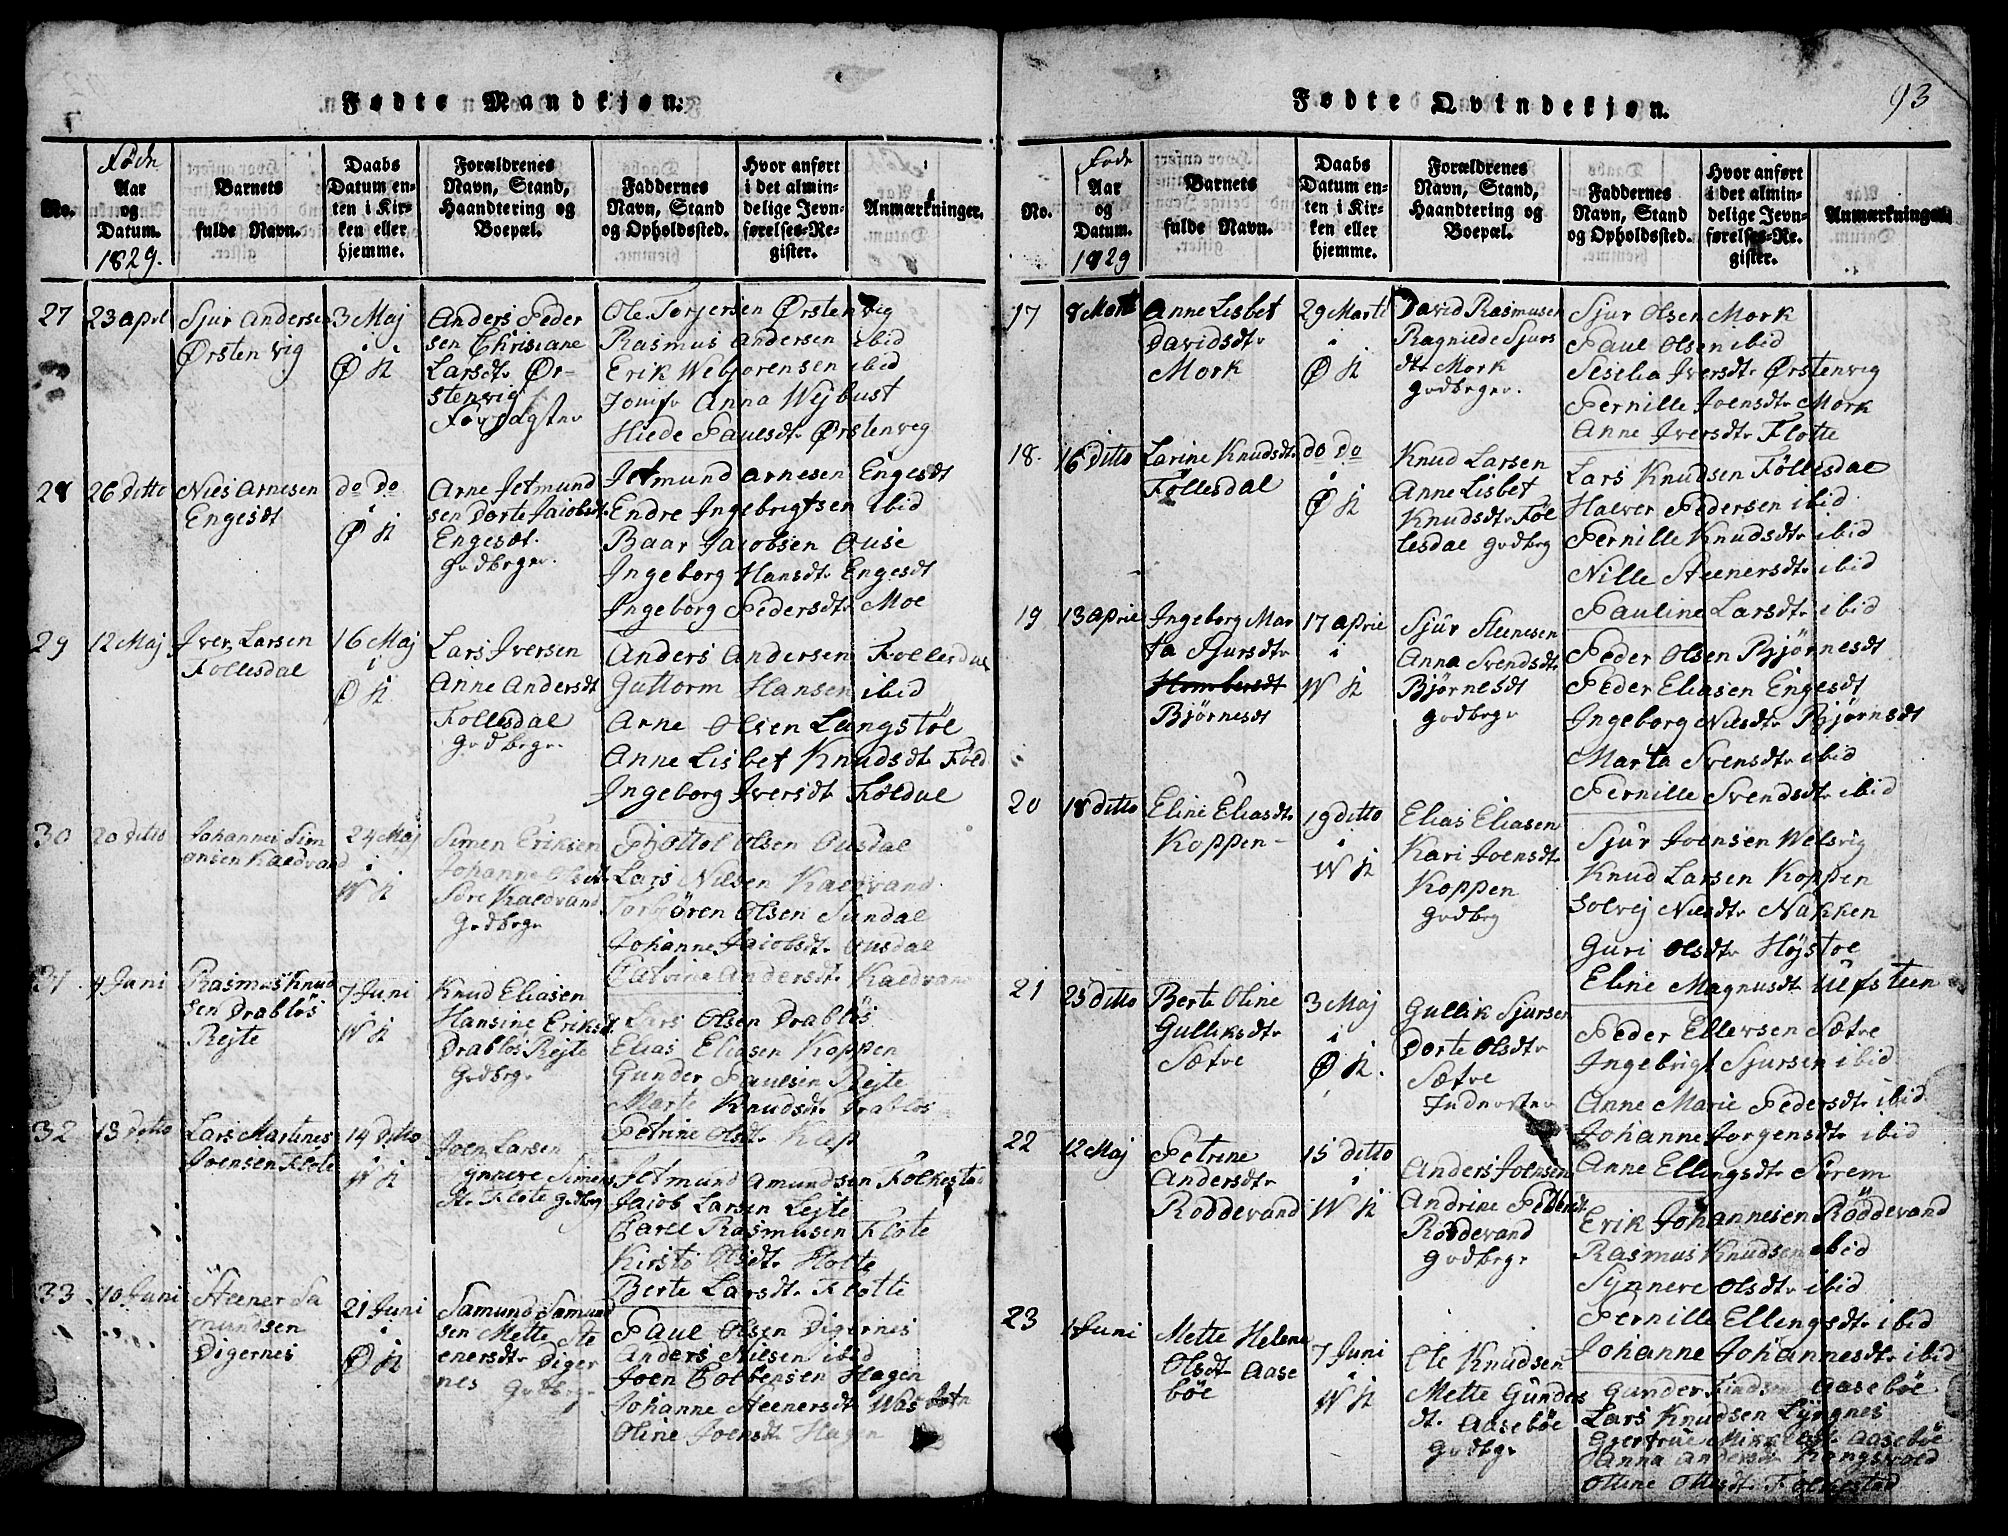 Fødte Mandkjøn.
Føde
Aar
og
Datum.
1829.
No.
Barnets
fulde Navn.
Daabs
Datum en-
ten i Kir-
ken eller
hjemme.
Forældrenes
Navn, Stand,
Haandtering og
Boepæl.
Faddernes
Navn, Stand
og Opholdssted.
Hvor anført
i det almin-
delige Jevn-
førelses-Re-
gister.
Anmærkninger.
27
23 april
Sjur Anderse
Ørstenvig
3 Maj
i
Ø K
Anders Peder
sen Christiane
Larsdtr Ør-
stenvig
Ole Torgersen Ørstenvig
Rasmus Andersen ibid
Erik Webjørensen ibid
Jomfr Anna Wejbust
Hilde Paulsdtr Ørstenvig
28
26 Ditto
Nils Arnesen
Engesdt
do Do
i
Ø K
Arne Jetmund
sen Dorte Jacobsdtr
Engesdt.
Grdbrgr.
Jetmund Arnesen Engesdt
Endre Ingebrigtsen ibid
Baar Jacobsen Ouse
Ingeborg Hansdtr Engesdt
Ingeborg Pedersdtr Moe
29
12 Maj
Iver Larsen
Follesdal
16 Maj
i
Ø K
Lars Iversen
Anne Andersdt
Follesdal
Grdbrgr.
Anders Andersen Follesdal
Guttorm Hansen ibid
Arne Olsen Langstøl
Anne Lisbet Knudsdtr Føld
Ingeborg Iversdt Føldal
30
20 Ditto
Johannes Sim
onsen Kaldvand
24 Maj
i
W K
Simen Eriksen
Johanne Olsdt
Søre Kaldvand
Grdbrgr
Olsen Ousdal
Lars Nilsen Kaldvand
Torbjören Olsen Sundal
Johanne Jacobsdtr Ousdal
Catrine Andersdtr Kaldvand
31
4 Juni
Rasmus Knud
sen Drabløs
Rejte
7 Juni
i
W K
Knud Eliasen
Hansine Eriksd
Drabløs Rejte
Grdbrgr
Lars Olsen Drabløs
Elias Eliasen Koppen
Gunder Paulsen Rejte
Marte Knudsdtr Drabløs
Petrine Olsdtr
32
13 Ditto
Lars Martines
Joensen Flote
14 Ditto
i
W K
Joen Larsen
Synnere Simens
dtr Flote Grdbrg
Jetmund Amundsen Folkestad
Jacob Larsen Lejte
Carl Rasmusen Flote
Kirsti Olsdtr Holte
Berte Larsdtr Flotte
33
10 Juni
Steener Sa
mundsen
Digernes
21 Juni
i
Ø K
Samund Samund
sen Mette Ste
enersdtr Diger
nes Grdbrgr
Paul Olsen Digernes
Anders Nilsen ibid
Joen Colbensen Hagen
Johanne Steenersdt
Oline Joensdt Hagen
Fødte Qvindekjøn.
93
No.
Føde
Aar
og
Datum.
1829
Barnets
fulde Navn.
Daabs
Datum en-
ten i Kir-
ken eller
hjemme.
Forældrenes
Navn, Stand,
Haandtering og
Boepæl.
Faddernes
Navn, Stand
og Opholdssted.
Hvor anført
i det almin-
delige Jevn-
førelses-Re-
gister.
Anmærkninger.
17
8 Marti
Anne Lisbet
Davidsdtr
Mork
29 Marti
i
Ø K
David Rasmusen
Ragnilde Sjurs
dtr Mork
Grdbrgr.
Sjur Olsen Mork
Paul Olsen ibid
Seselia Iversdtr Ørstenvig
Pernille Joensdtr Mork
Anne Iversdtr Flotte
18.
16 Ditto
Larine Knudsdtr
Føllesdal
do Do
i
Ø K
Knud Larsen
Anne Lisbet
Knudsdtr Føl
lesdal Grdbrg
Lars Knudsen Føllesdal
Halver Pedersen ibid
Pernille Knudsdtr ibid
Nille Steenersdtr ibid
Pauline Larsdtr ibid
19
13 April
Ingeborg Mar
ta Sjursdtr
Bjørnesdt
17 April
i
W K
Sjur Steenesen
Anna Svendsdtr
Bjørnesdt
Grdbrgr
Peder Olsen Bjørnesdt
Peder Eliasen Engesdt
Ingeborg Nilsdtr Bjørnsdt
Marta Svensdtr ibid
Pernille Svendsdtr ibid
20
18 Ditto
Eline Eliasdtr
Koppen
19 Ditto
i
W K
Elias Eliasen
Kari Joensdtr
Koppen
Grdbrg
Sjur Joensen Welsvig
Knud Larsen Koppen
Solvej Nilsdtr Nakken
Guri Olsdtr Højstøl
Eline Magnusdt Ulfsteen
21
25 Ditto
Berte Oline
Gulliksdtr
Sætre
3 Maj
i
Ø K.
Gullik Sjursen
Dorte Olsdtr
Sætre
Peder Ellevsen Sætre
Ingebrigt Sjursen ibid
Anne Marie Pedersdtr ibid
Johanne Jørgensdtr ibid
Anne Ellingsdtr Sørem
22
12 Maj
Petrine
Andersdtr
Røddevand
15 Ditto
i
W K
Anders Joensen
Andrine Pedersdt
Røddevand
Grdbrgr
Erik Johannesen Røddevand
Rasmus Knudsen ibid
Synnere Olsdtr ibid
Pernille Ellingsdtr ibid
Johanne Johannesdtr ibid
23
1 Juni
Mette Helene
Olsdt Aase
bøe
7 Juni
i
W K
Ole Knudsen
Mette Gunders
dt. Aasebøe
Grdbgr
Gunder Findsen Aasebøe
Lars Knudsen Lyngnes
Aasebøe
Hanna Andersdt
Oline Olsdtr Folkestad